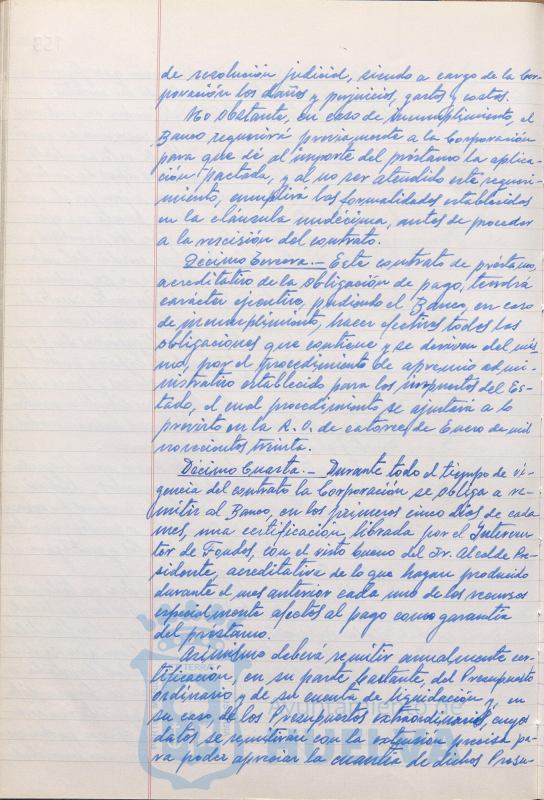 de resolución judicial, siendo a cargo de la Cor-
poración los daños y perjuicios, gastos y costas.
No obstante, en caso de incumplimiento, el
Banco requerirá previamente a la Corporación
para que dé, al importe del préstamo la aplica-
ción pactada, y al no ser atendido este requeri-
miento, cumplirá las formalidades establecidas
en la cláusula undécima, antes de proceder
a la rescisión del contrato.
Décimo Tercera.- Este contrato de préstamo,
acreditativo de la obligación de pago, tendrá
carácter ejecutivo, pudiendo el Banco, en caso
de incumplimiento, hacer efectivas todas las
obligaciones que contiene y se deriven del mis-
mo, por el procedimiento de apremio admi-
nistrativo establecido para los impuestos del Es-
tado, el cual procedimiento se ajustará a lo
previsto en la R. O. de catorce de Enero de mil
novecientos treinta.
Décimo Cuarta.- Durante todo el tiempo de vi-
gencia del contrato la Corporación se obliga a re-
mitir al Banco, en los primeros cinco días de cada
mes, una certificación, librada por el Interven-
tor de Fondos, con el visto bueno del Sr. Alcalde Pre-
sidente, acreditativa de lo que hayan producido
durante el mes anterior cada uno de los recursos
especialmente afectos al pago como garantía
del préstamo.
Asimismo deberá remitir anualmente cer-
tificación, en su parte bastante del Presupuesto
ordinario y de su cuenta de liquidación y en
su caso, de los Presupuestos extraordinarios, cuyos
datos se remitirán con la extensión precisa pa-
ra poder apreciar la cuantía de dichos Presu-
TERRA
Ayuntamiento de
HUELVA